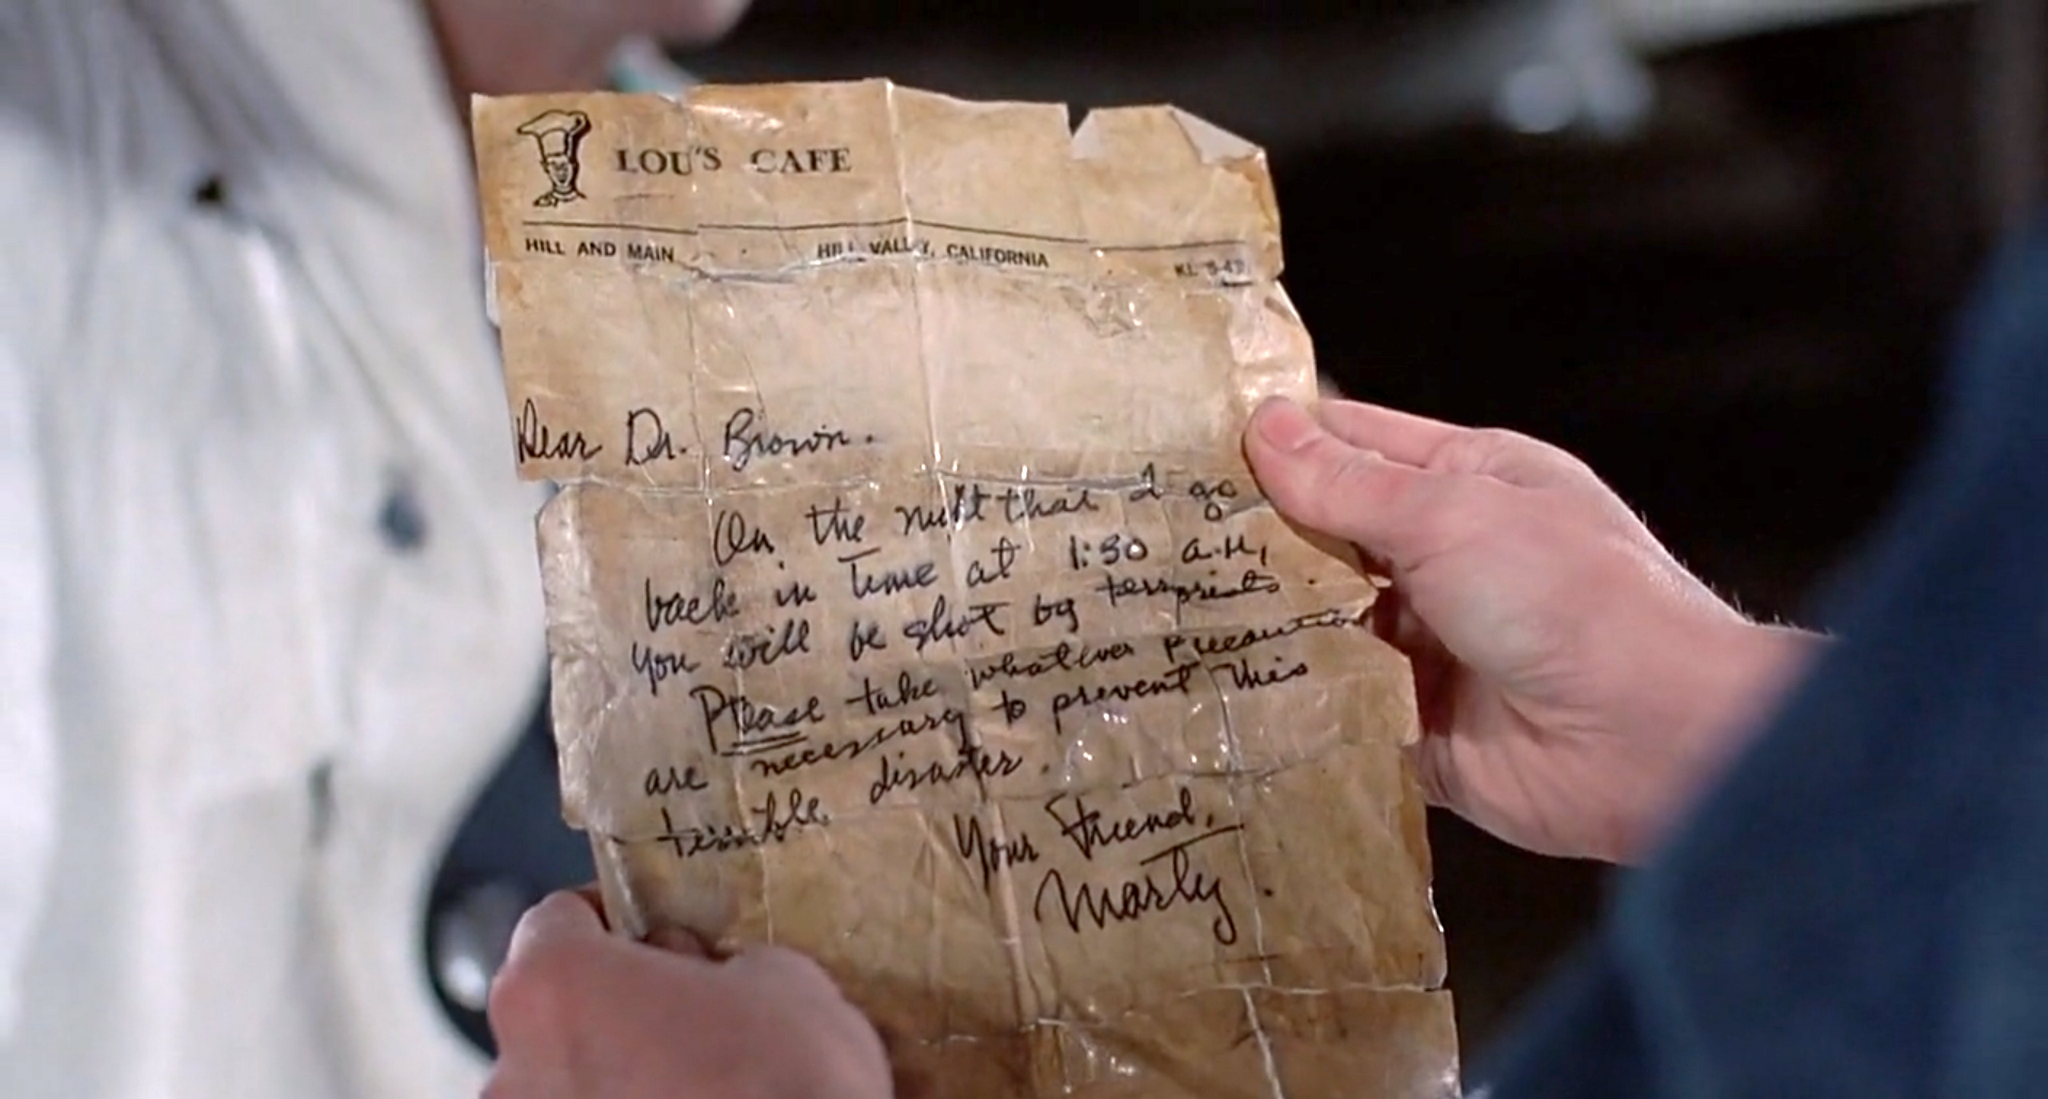 LOU'S CAFE
HILL AND MAIN HILL VALLEY, CALIFORNIA KL 5-4
Dear Dr. Brown.
On the night that I go
back in time at 1:30 a.m,
you will be shot by terrorists.
Please take whatever precaution
are necessary to prevent this
terrible disaster.
Your Friend,
Marty.